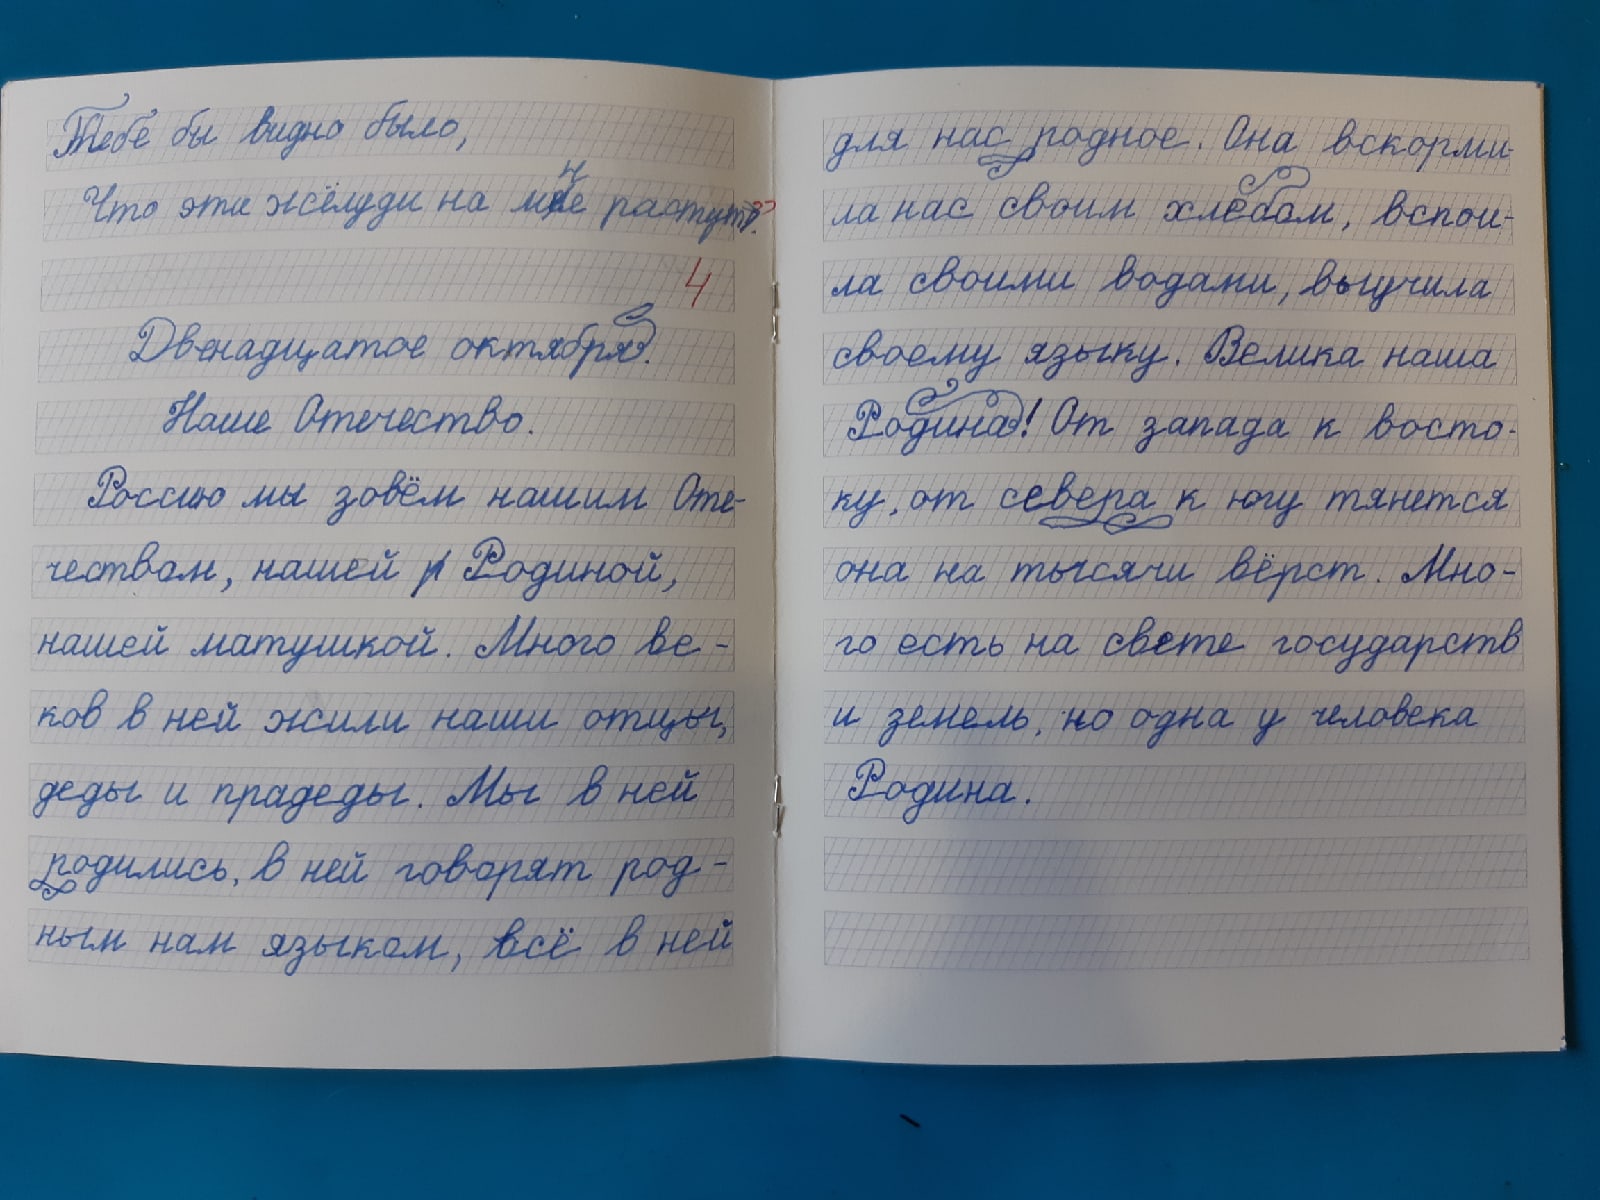 Тебе бы видно было,
Что эти жёлуди на мне растут?
4
Двенадцатое октября.
Наше Отечество.
Россию мы зовём нашим Оте-
чеством, нашей Родиной,
нашей матушкой. Много ве-
ков в ней жили наши отцы,
деды и прадеды. Мы в ней
родились, в ней говорят род-
ным нам языком, всё в ней
для нас родное. Она вскорми-
ла нас своим хлебом, вспои-
ла своими водами, выучила
своему языку. Велика наша
Родина! От запада к восто-
ку, от севера к югу тянется
она на тысячи вёрст. Мно-
го есть на свете государств
и земель, но одна у человека
Родина.